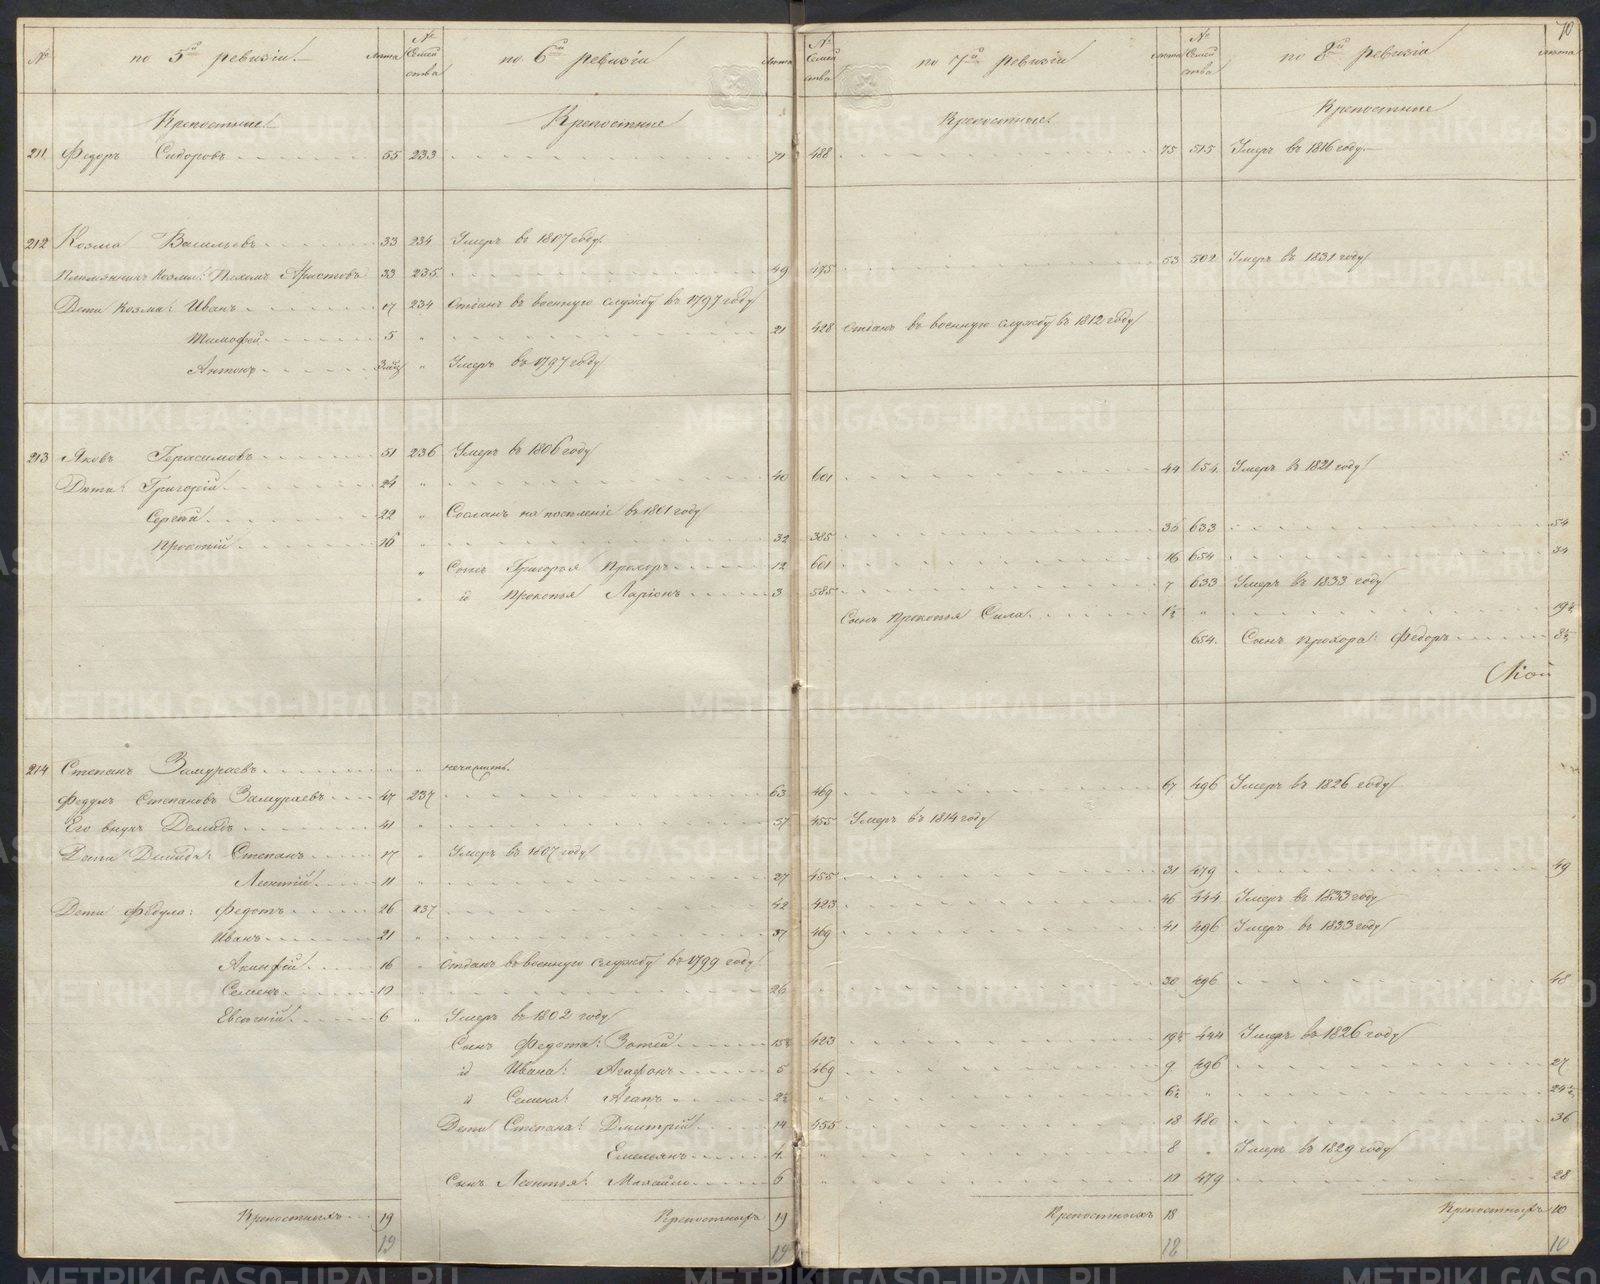 № по 5й ревизіи. лѣта № Семейства по 6й ревизіи лѣта № Семейства по 7й ревизіи лѣта № Семейства по 8й ревизіи лѣта 70
Крепостные Крепостные Крепостные Крепостные
211 Федоръ Сидоровъ 55 233 71 488 75 515 Умеръ въ 1816 году.
212 Козма Васильевъ 33 234 Умеръ въ 1807 году.
Племянникъ Козмы: Пахомъ Аристовъ 33 235 49 495 53 502 Умеръ въ 1831 году
Дети Козмы: Иванъ 17 234 Отданъ въ военную службу въ 1797 году
Тимофей 5 " 21 428 Отданъ въ военную службу въ 1812 году
Антонъ " Умеръ въ 1797 году
213 Яковъ Герасимовъ 51 236 Умеръ въ 1806 году
Дети: Григорій 24 " 40 601 44 654 Умеръ въ 1821 году
Сергѣй 22 " Сосланъ на поселеніе въ 1801 году
Прокопій 16 " 32 585 35 633 54
" Сынъ Григорья Прохоръ 12 601 16 654 34
" id Прокопья Ларіонъ 3 585 7 633 Умеръ въ 1833 году
Сынъ Прокопья Сила 1½ " 19½
654. Сынъ Прохора: Федоръ 8½
214 Степанъ Замураевъ " "
Федулъ Степановъ Замураевъ 47 237 63 469 67 496 Умеръ въ 1826 году
Его внукъ Демидъ 41 " 57 455 Умеръ въ 1814 году
Дети Демида: Степанъ 17 " Умеръ въ 1807 году
Леонтій 11 " 27 455 31 479 49
Дети Федула: Федотъ 26 237 42 423 46 444 Умеръ въ 1833 году
Иванъ 21 " 37 469 41 496 Умеръ въ 1833 году
Акинфій 16 " Отданъ въ военную службу въ 1799 году
Семенъ 10 " 26 " 30 496 48
Евсегній 6 " Умеръ въ 1802 году
Сынъ Федота: Зотей 15½ 423 19½ 444 Умеръ въ 1826 году
id Ивана: Агафонъ 5 469 9 496 27
id Семена: Агапъ 2½ " 6½ " 24½
Дети Степана: Дмитрій 14 455 18 480 36
Емельянъ 4 " 8 " Умеръ въ 1829 году
Сынъ Леонтья: Михайло 6 " 10 479 28
Крепостныхъ 19 Крепостныхъ 19 Крепостныхъ 18 Крепостныхъ 10
19 19 18 10
METRIKI.GASO-URAL.RU